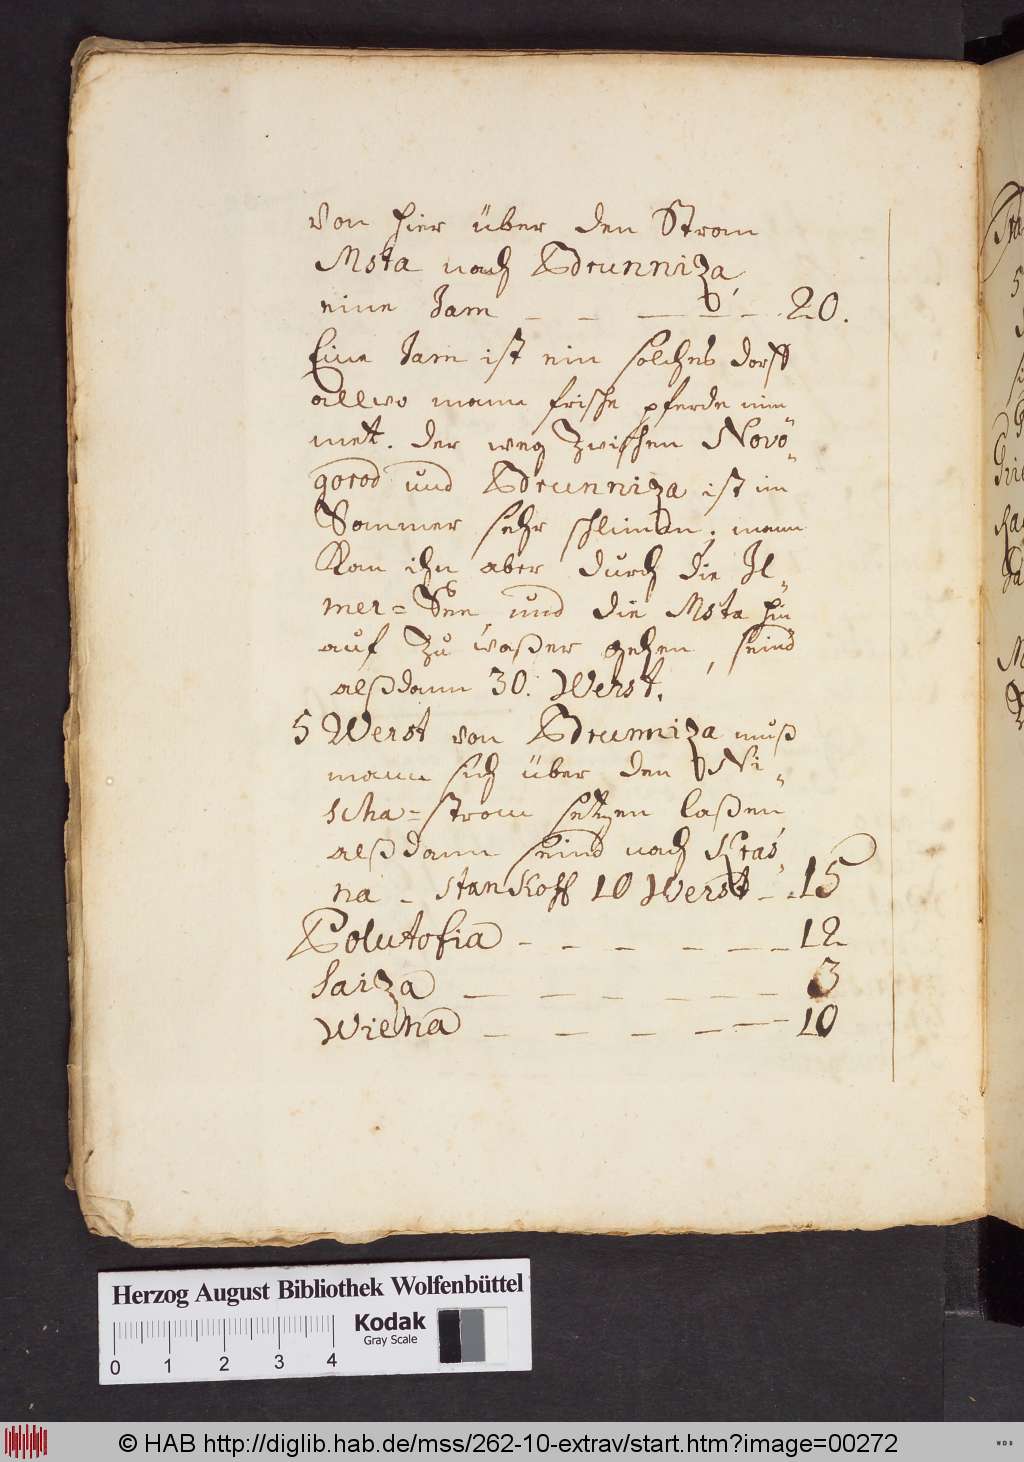 von hier über den Strom
Msta nach Brunniza,
eine Jam - - - - - 20.
Eine Jam ist ein solches dorff
allwo mann frische pferde nim-
met. der weg zwischen Novo-
gorod und Brunniza ist im
Sommer sehr schlimm, mann
kan ihn aber durch die Il-
mer=See, und die Msta hin
auf zu waßer gehen, seind
alßdann 30. Werst.
5 Werst von Brunniza muß
mann sich über den Ni-
scha=strom setzen laßen
alßdann seind nach Kras
na - stanKoff 10 Werst - - 15
Polutofia - - - - - - - 12
Saiza - - - - - - - 3
Wiena - - - - - - 10
Herzog August Bibliothek Wolfenbüttel
Kodak
Gray Scale
0 1 2 3 4
© HAB http://diglib.hab.de/mss/262-10-extrav/start.htm?image=00272